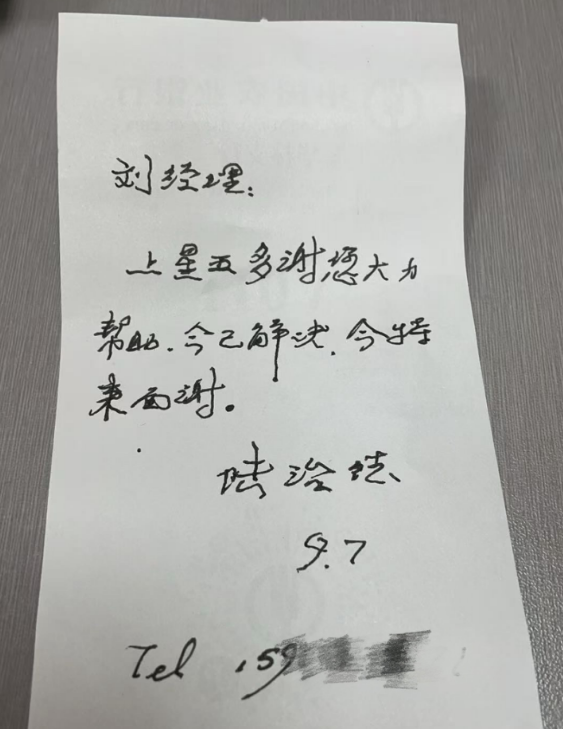 刘经理：
上星五多谢您大力
帮助.今已解决.今特
来面谢。
陆治
9.7
Tel 159